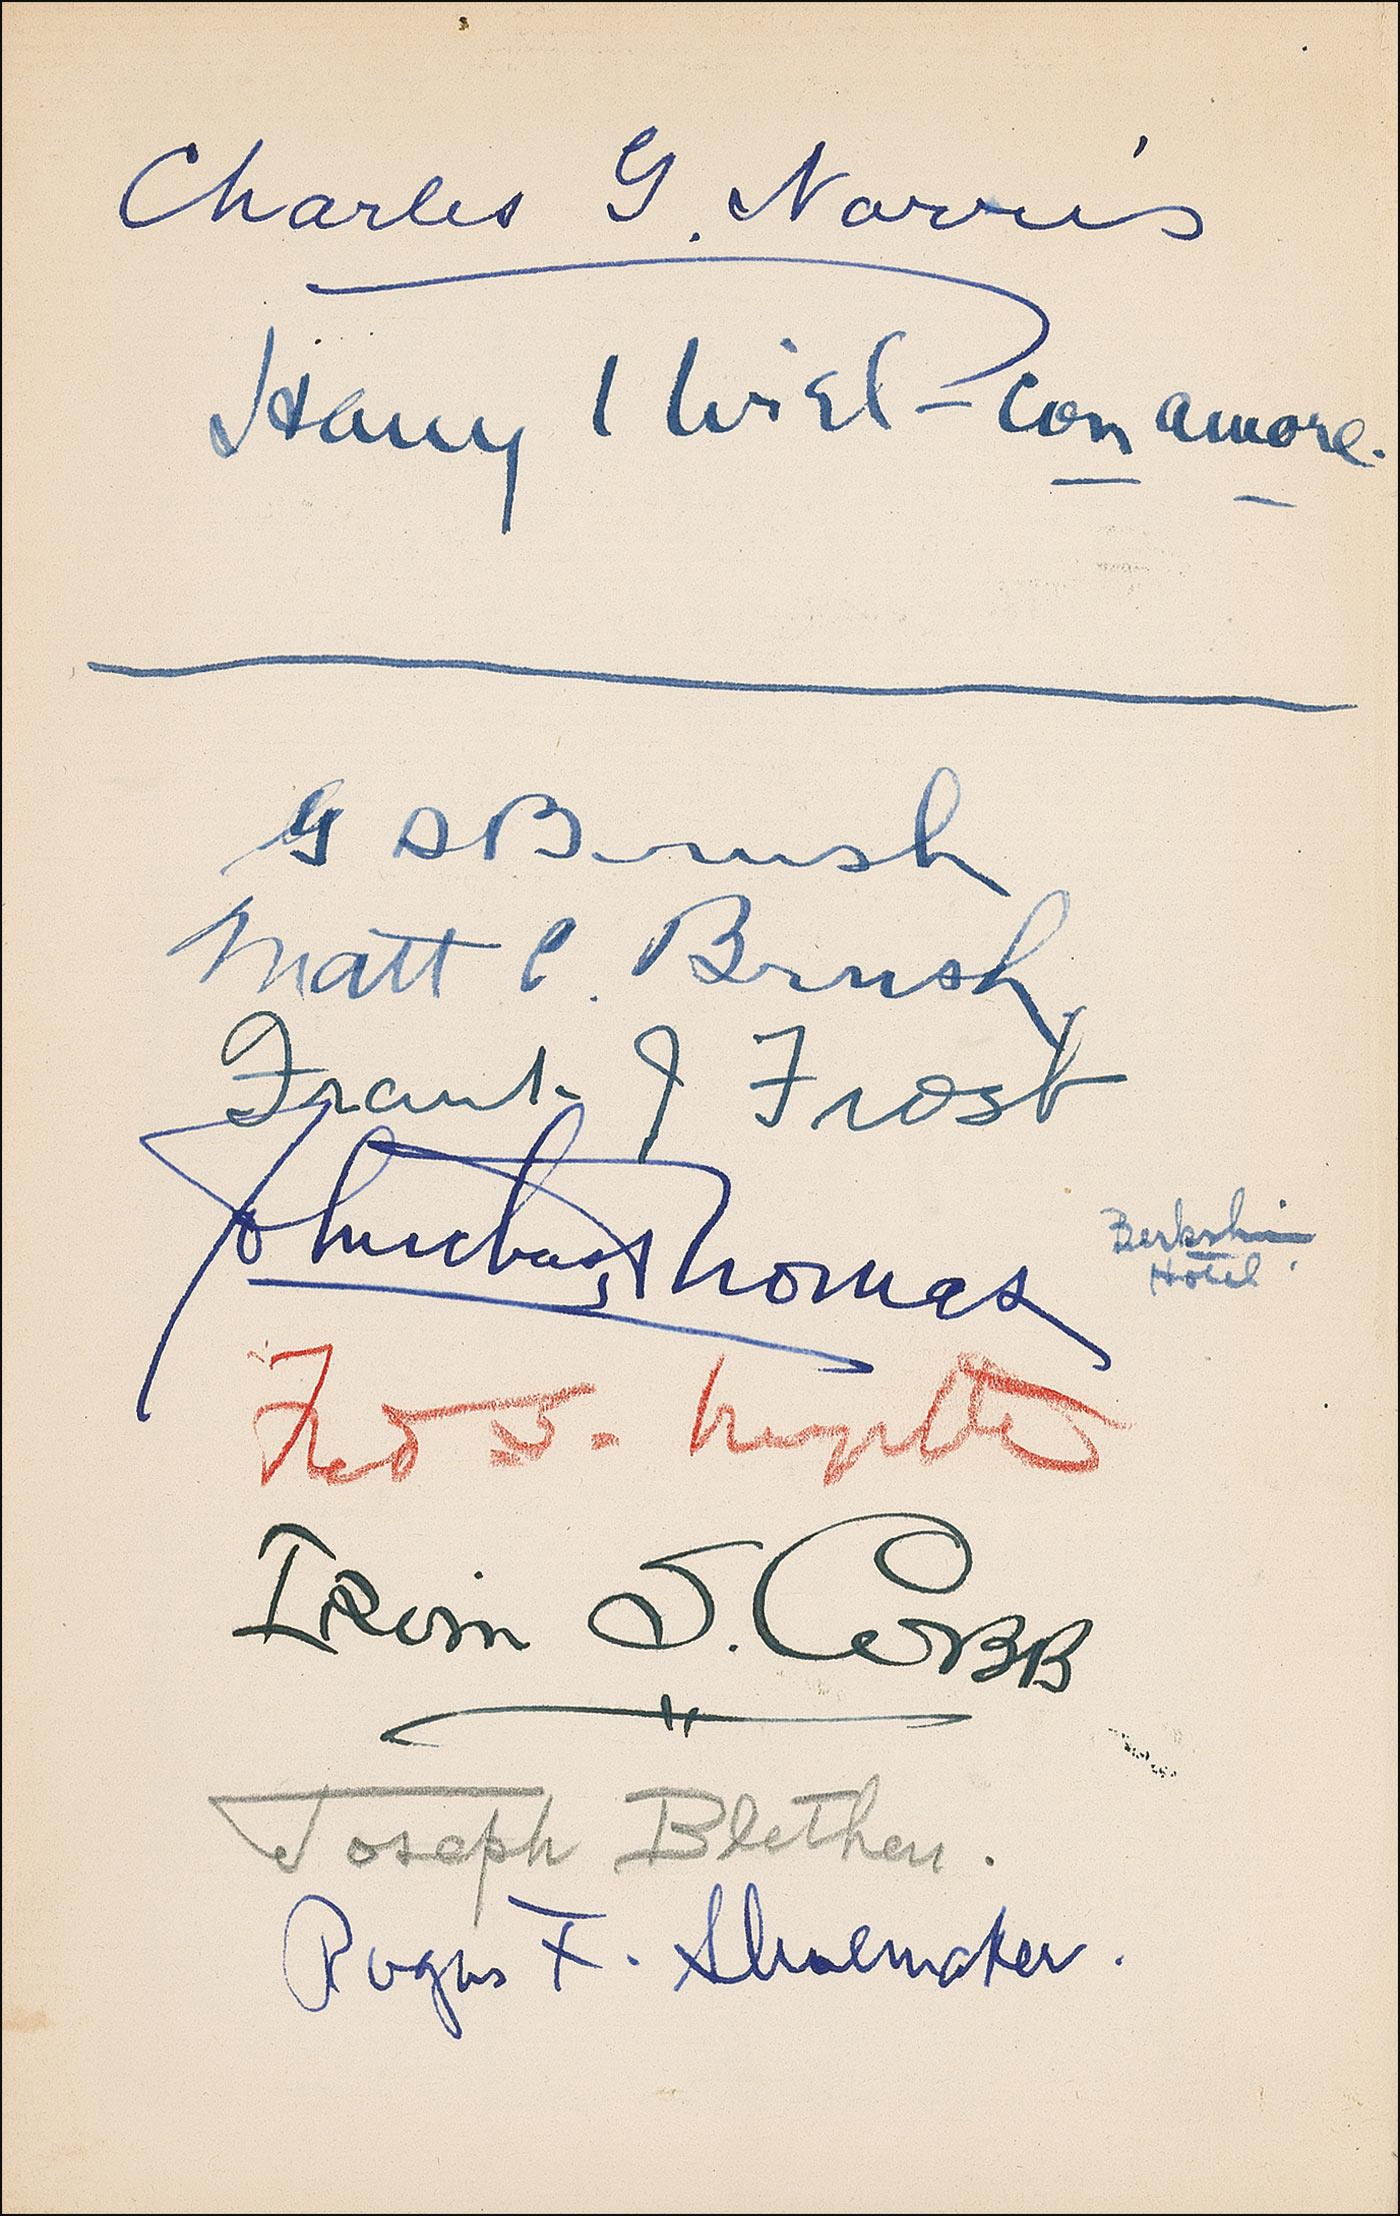 Charles G. Norris
Harry I Wiel - Con amore.
G S Brush
Matt C. Brush
Frank J Frost
John Charles Thomas
Berkshire Hotel.
Fred J.
Irvin S. Cobb
Joseph Blethen.
F. Shoemaker.